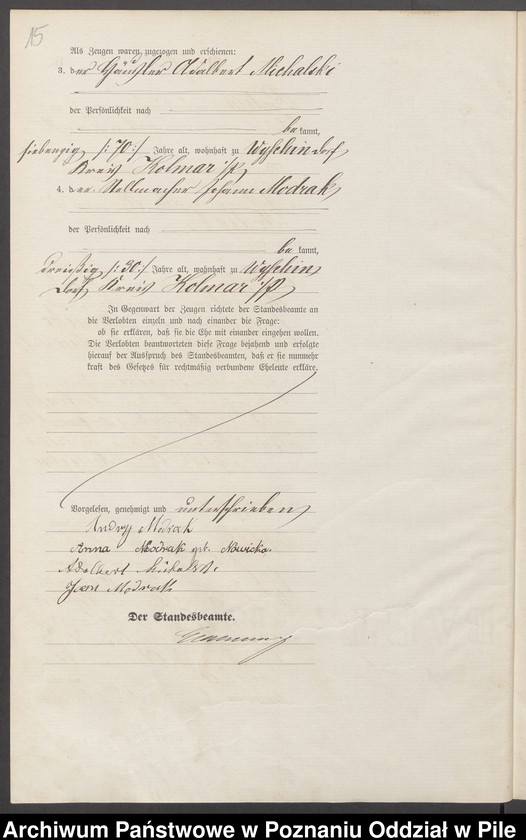 15
Als Zeugen waren zugezogen und erschienen:
3. der Häusler Adalbert Michalski
der Persönlichkeit nach
bekannt,
siebenzig /:70:/ Jahre alt, wohnhaft zu Wyschindorf
Kreis Kolmar i/P
4. der Stellmacher Johann Modrak
der Persönlichkeit nach
bekannt,
dreißig /:30:/ Jahre alt, wohnhaft zu Wyschin
dorf Kreis Kolmar i/P
In Gegenwart der Zeugen richtete der Standesbeamte an
die Verlobten einzeln und nach einander die Frage:
ob sie erklären, daß sie die Ehe mit einander eingehen wollen.
Die Verlobten beantworteten diese Frage bejahend und erfolgte
hierauf der Ausspruch des Standesbeamten, daß er sie nunmehr
kraft des Gesetzes für rechtmäßig verbundene Eheleute erkläre.
Vorgelesen, genehmigt und unterschrieben
Andrzy Modrak
Anna Modrak geb. Nowicka.
Adalbert
Jan Modrak
Der Standesbeamte.
Archiwum Państwowe w Poznaniu Oddział w Pile